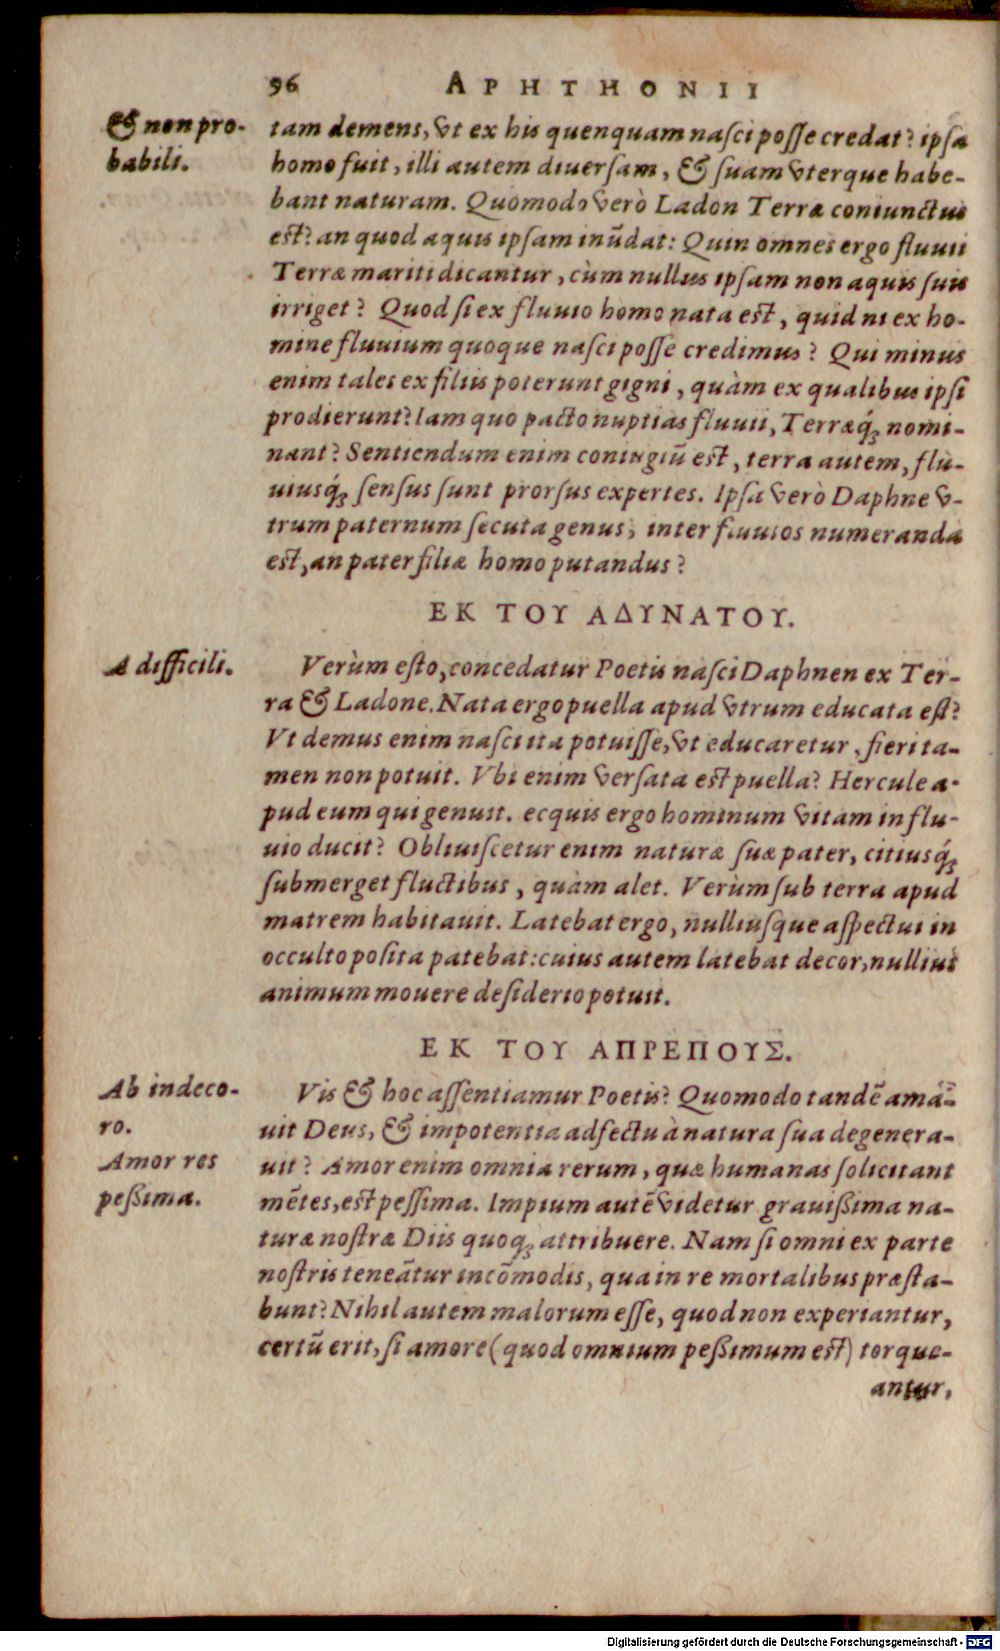 96 APHTHONII
& non pro-
babili.
tam demens, vt ex his quenquam nasci posse credat? ipsa
homo fuit, illi autem diuersam, & suam vterque habe-
bant naturam. Quomodo verò Ladon Terræ coniunctus
est? an quod aquis ipsam inũdat: Quin omnes ergo fluuii
Terræ mariti dicantur, cùm nullus ipsam non aquis suis
irriget? Quod si ex fluuio homo nata est, quid ni ex ho-
mine fluuium quoque nasci posse credimus? Qui minus
enim tales ex filiis poterunt gigni, quàm ex qualibus ipsi
prodierunt? Iam quo pacto nuptias fluuii, Terræq́; nomi-
nant? Sentiendum enim coniugiũ est, terra autem, flu-
uiusq́; sensus sunt prorsus expertes. Ipsa verò Daphne v-
trum paternum secuta genus, inter fluuios numeranda
est, an pater filiæ homo putandus?
ΕΚ ΤΟΥ ΑΔΥΝΑΤΟΥ.
A difficili.
Verùm esto, concedatur Poetis nasci Daphnen ex Ter-
ra & Ladone. Nata ergo puella apud vtrum educata est?
Vt demus enim nasci ita potuisse, vt educaretur, fieri ta-
men non potuit. Vbi enim versata est puella? Hercule a-
pud eum qui genuit. ecquis ergo hominum vitam in flu-
uio ducit? Obliuiscetur enim naturæ suæ pater, citiusq́;
submerget fluctibus, quàm alet. Verùm sub terra apud
matrem habitauit. Latebat ergo, nulliusque aspectui in
occulto posita patebat: cuius autem latebat decor, nullius
animum mouere desiderio potuit.
ΕΚ ΤΟΥ ΑΠΡΕΠΟΥΣ.
Ab indeco-
ro.
Amor res
peßima.
Vis & hoc assentiamur Poetis? Quomodo tandẽ ama-
uit Deus, & impotentia adfectu à natura sua degenera-
uit? Amor enim omnia rerum, quæ humanas solicitant
mẽtes, est pessima. Impium autẽ videtur grauißima na-
turæ nostræ Diis quoq; attribuere. Nam si omni ex parte
nostris teneãtur incõmodis, qua in re mortalibus præsta-
bunt? Nihil autem malorum esse, quod non experiantur,
certũ erit, si amore (quod omnium peßimum est) torque-
antur,
Digitalisierung gefördert durch die Deutsche Forschungsgemeinschaft - DFG